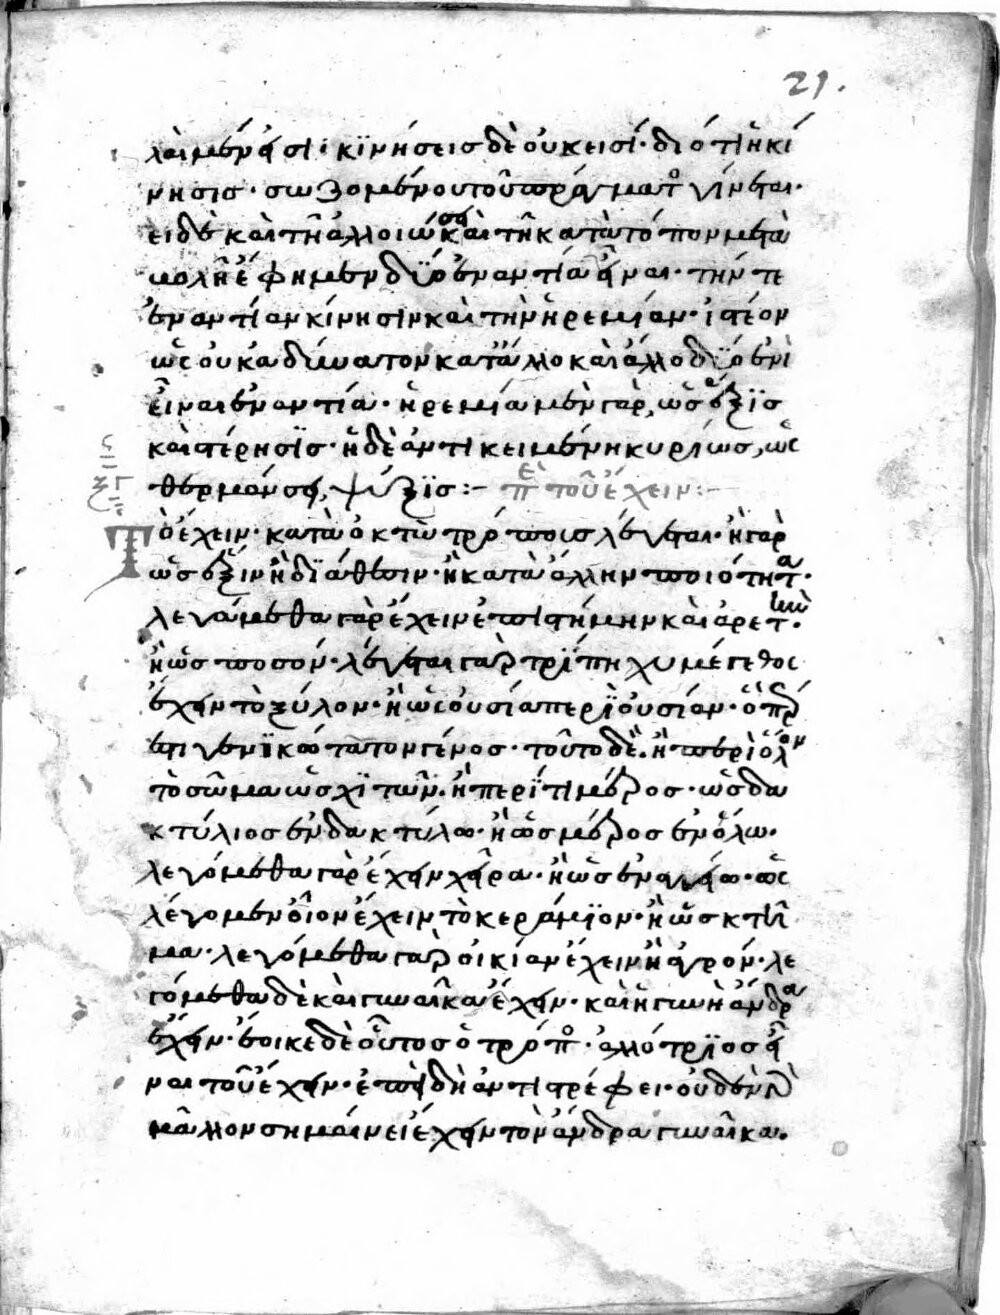 21.
λαι μέν εἰσι· κϊνήσεις δὲ οὐκ εἰσί· διότι ἡ κί
νησις· σωζομένου τοῦ πράγματος γίνεται·
εἰ δὲ καὶ τῆ ἀλλοιώσει καὶ τῆ κατὰ τόπον μετα
βολῆ ἔφημεν δύο ἐναντία εἶναι· τήν τε
ἐναντίαν κίνησιν καὶ τὴν ἠρεμίαν· ἰστέον
ὡς οὐκ ἀδύνατον κατ' ἄλλο καὶ ἄλλο δύο ἑνὶ
εἶναι ἐναντία· ἠρεμία μὲν γὰρ, ὡς ἕξις
καὶ στέρησϊς· ἡ δὲ ἀντικειμένη κυρίως, ὡς
θέρμανσει, ψύξϊς:– περὶ τοῦ ἔχειν:–
Τὸ ἔχειν· κατὰ ὀκτὼ τρόπους λέγεται· ἢ γὰρ
ὡς ἕξιν ἢ διάθεσιν· ἢ κατὰ ἄλλην ποιότητα·
λεγόμεθα γὰρ ἔχειν ἐπιστήμην καὶ ἀρετήν·
ἢ ὡς ποσόν· λέγεται γὰρ τρίπηχυ μέγεθος
ἔχειν τὸ ξύλον· ἢ ὡς οὐσία περὶ οὐσίαν· ὅπερ
ἐστὶ γενϊκώτατον γένος· τοῦτο δὲ· ἢ περὶ ὅλον
τὸ σῶμα ὡς χϊτών· ἢ περί τι μέρος· ὡς δα
κτύλιος ἐν δακτύλω· ἢ ὡς μέρος ἐν ὅλω·
λεγόμεθα γὰρ ἔχειν χεῖρα· ἢ ὡς ἐν ἀγγείω· ὡς
λέγομεν οἶνον ἔχειν τὸ κεράμϊον· ἢ ὡς κτῆ
μα· λεγόμεθα γὰρ οἰκίαν ἔχειν ἢ ἀγρόν· λε
γόμεθα δὲ καὶ γυναῖκα ἔχειν· καὶ ἡ γυνὴ ἄνδρα
ἔχειν· ἔοικε δὲ οὗτος ὁ τρόπος· ἀλλότριος εἶ
ναι τοῦ ἔχειν· ἐπειδὴ ἀντιστρέφει· οὐδὲν γὰρ
μᾶλλον σημαίνει ἔχειν τὸν ἄνδρα γυναῖκα.